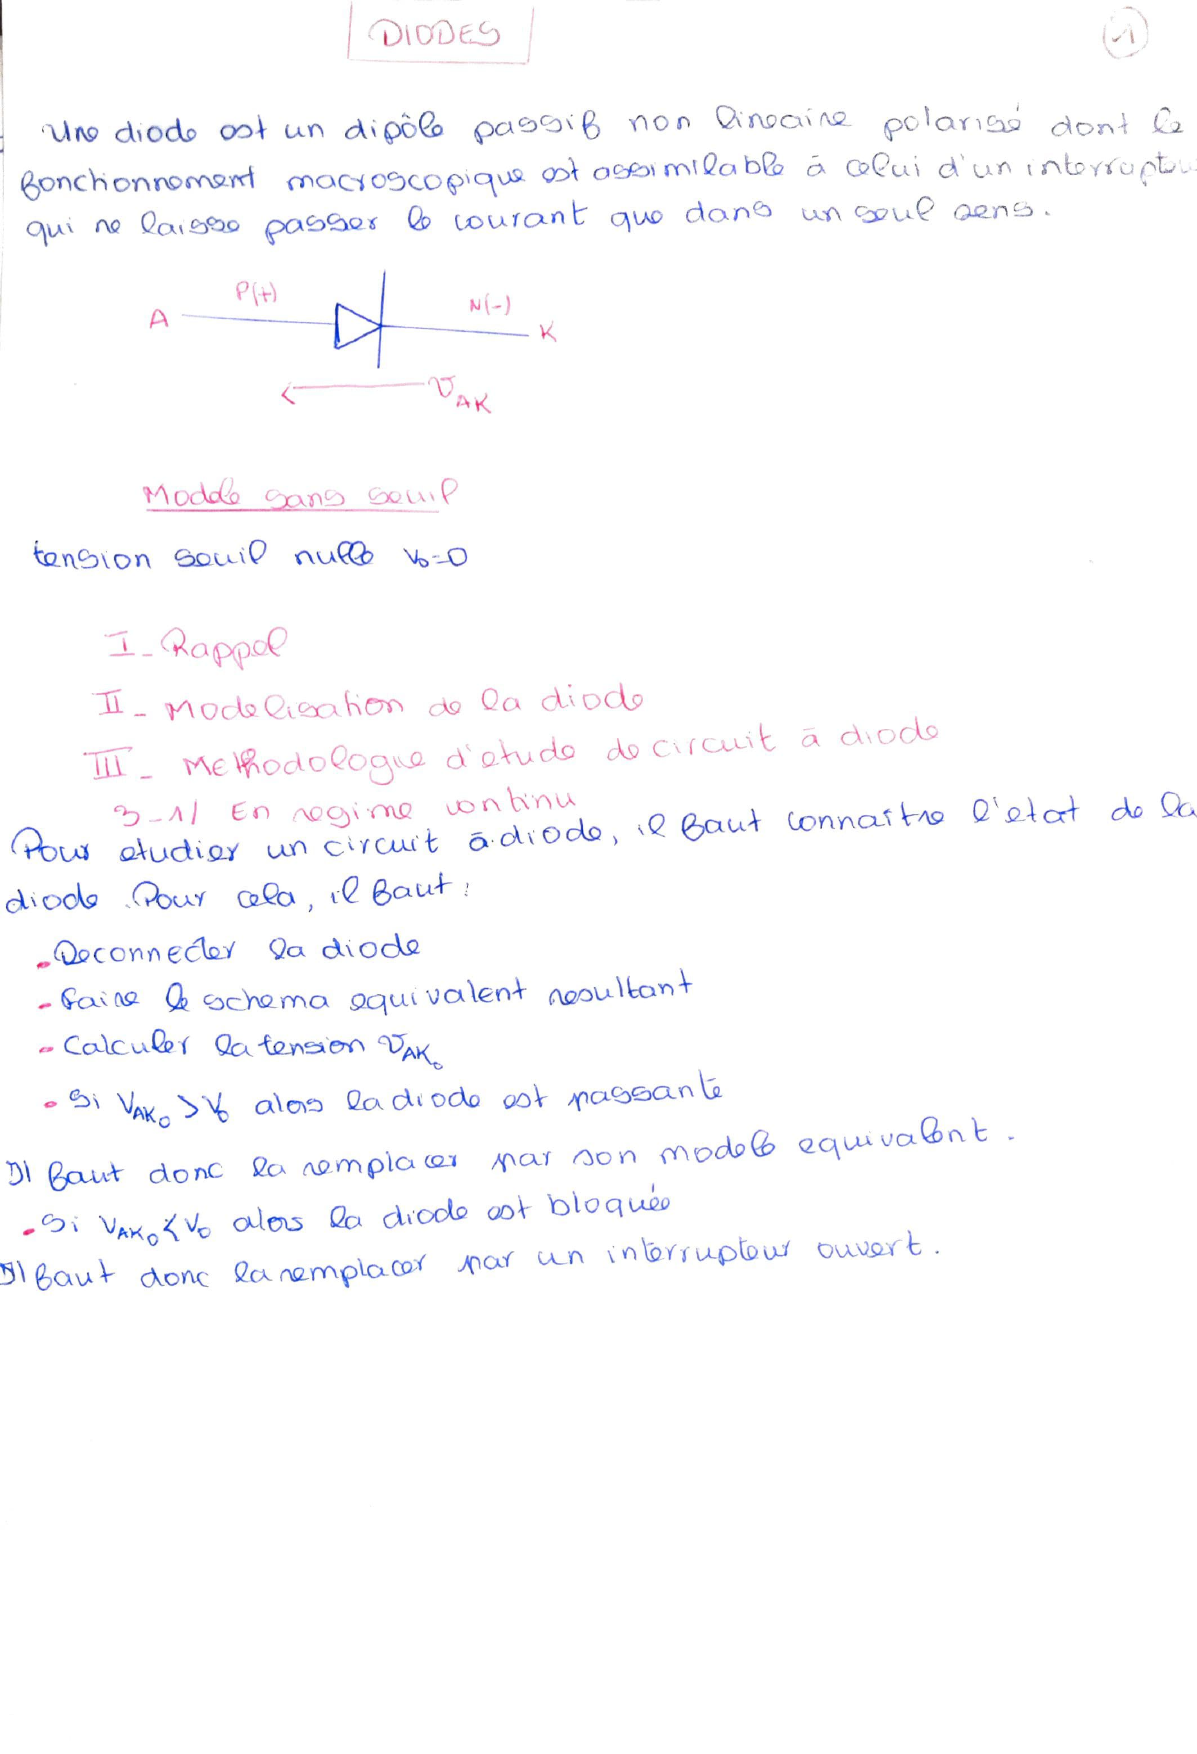 DIODES
1
Une diode est un dipôle passif non lineaire polarisé dont le
fonctionnement macroscopique est assimilable à celui d'un interrupteu
qui ne laisse passer le courant que dans un seul sens.
P(+)
N(-)
A
K
V_AK
Modele sans seuil
tension seuil nulle V₀=0
I- Rappel
II- Modelisation de la diode
III- Methodologie d'etude de circuit à diode
3-1/ En regime continu
Pour etudier un circuit à diode, il faut connaître l'etat de la
diode. Pour cela, il faut:
- Deconnecter la diode
- faire le schema equivalent resultant
- Calculer la tension V_AK₀
- Si V_AK₀ > V₀ alors la diode est passante
Il faut donc la remplacer par son modele equivalent.
- Si V_AK₀ < V₀ alors la diode est bloquée
Il faut donc la remplacer par un interrupteur ouvert.